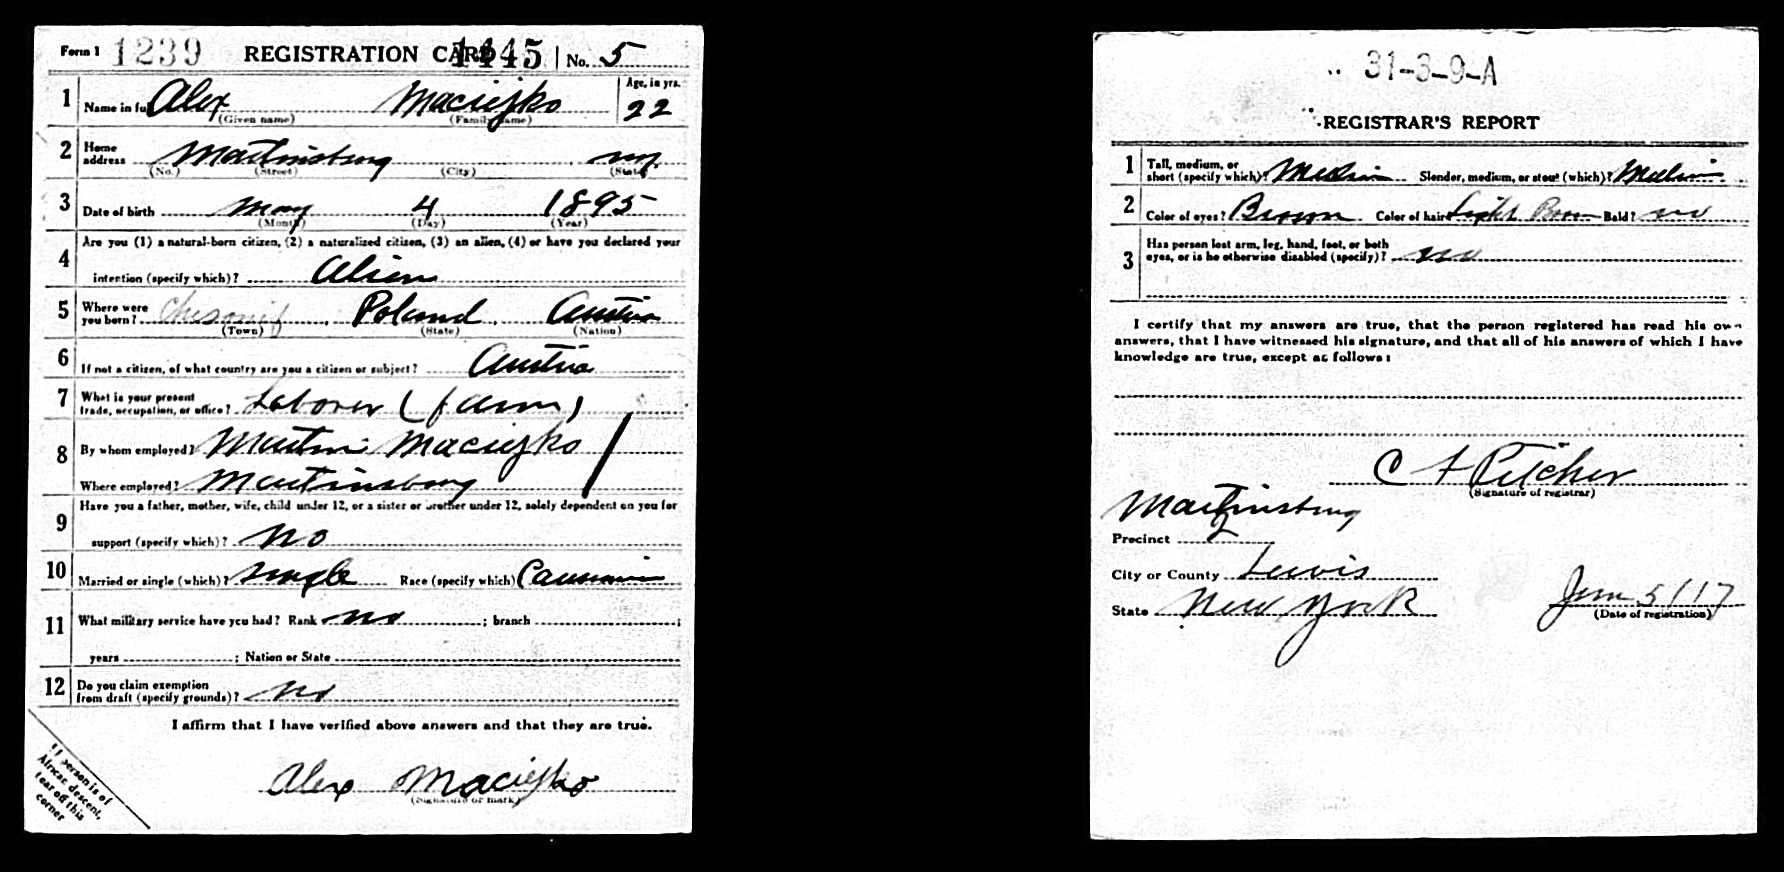 Form 1 1239 REGISTRATION CARD 1445 No. 5
1 Name in full Alex Maciejko Age, in yrs. 22
(Given name) (Family name)
2 Home address Martinsburg N.Y.
(No.) (Street) (City) (State)
3 Date of birth May 4 1895
(Month) (Day) (Year)
4 Are you (1) a natural-born citizen, (2) a naturalized citizen, (3) an alien, (4) or have you declared your
intention (specify which)? Alien
5 Where were you born? Poland Austria
(Town) (State) (Nation)
6 If not a citizen, of what country are you a citizen or subject? Austria
7 What is your present trade, occupation, or office? Laborer (farm)
8 By whom employed? Martin Maciejko
Where employed? Martinsburg
9 Have you a father, mother, wife, child under 12, or a sister or brother under 12, solely dependent on you for
support (specify which)? No
10 Married or single (which)? Single Race (specify which) Caucasian
11 What military service have you had? Rank no ; branch ;
years ; Nation or State
12 Do you claim exemption from draft (specify grounds)? No
I affirm that I have verified above answers and that they are true.
Alex Maciejko
(Signature or mark)
If person is of
African descent,
tear off this
corner
31-3-9-A
REGISTRAR'S REPORT
1 Tall, medium, or short (specify which)? Medium Slender, medium, or stout (which)? Medium
2 Color of eyes? Brown Color of hair Light Brown Bald? no
3 Has person lost arm, leg, hand, foot, or both eyes, or is he otherwise disabled (specify)? no
I certify that my answers are true, that the person registered has read his own
answers, that I have witnessed his signature, and that all of his answers of which I have
knowledge are true, except as follows:
C F Pitcher
(Signature of registrar)
Martinsburg
Precinct 2
City or County Lewis
State New York June 5/17
(Date of registration)